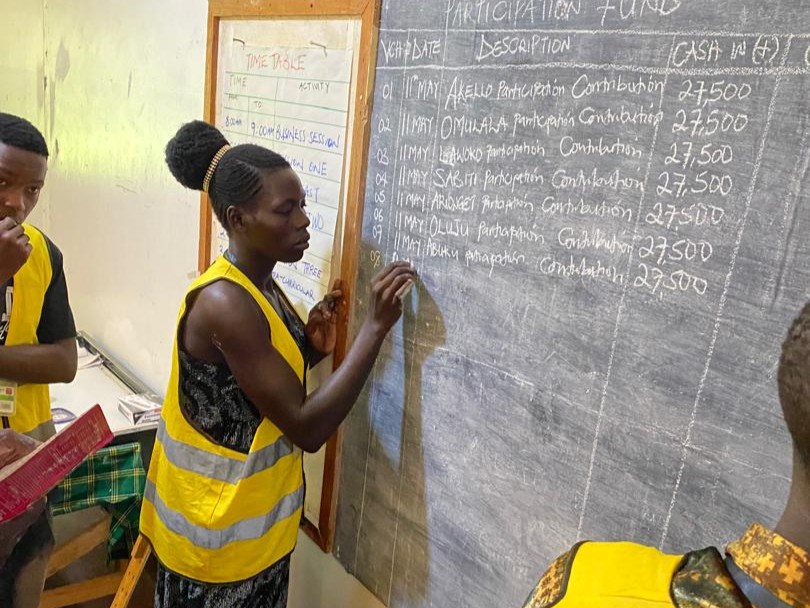 TIME TABLE
TIME ACTIVITY
TO:
8:00AM 9:00AM BUSINESS SESSION
ONE
TWO
THREE
PARTICIPATION FUND
VCH DATE DESCRIPTION CASH IN (+)
01 11th MAY AKELLO Participation Contribution 27,500
02 11 MAY OMULALA Participation Contribution 27,500
03 11 MAY Participation Contribution 27,500
04 11 MAY SABITI Participation Contribution 27,500
05 11 MAY Participation Contribution 27,500
06 11 MAY OLUJU Participation Contribution 27,500
07 11 MAY ABUKU Participation Contribution 27,500
08